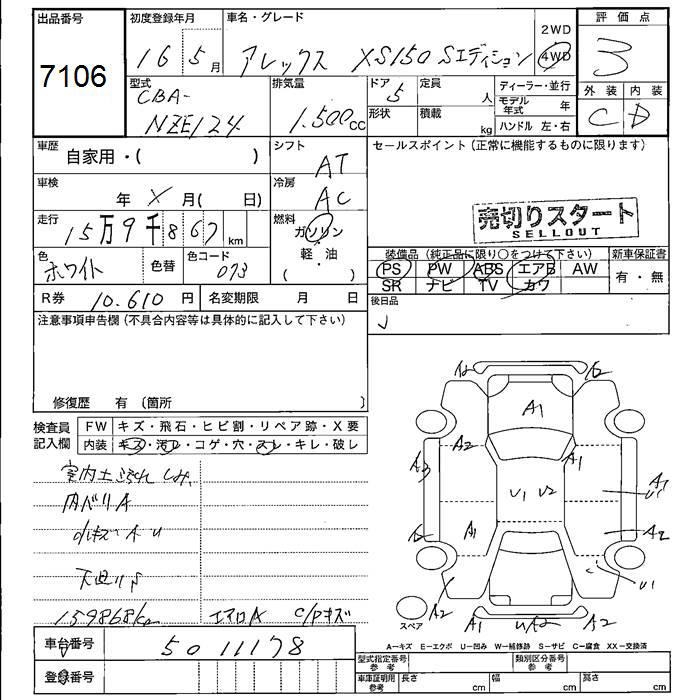 出品番号 初度登録年月 車名・グレード 評価点
7106 16 5月 アレックス XS150 Sエディション 2WD 4WD 3
型式 排気量 ドア 定員 ディーラー・並行 外装 内装
CBA- 5 人 モデル年式 年 C D
NZE124 1.500cc 形状 積載 kg ハンドル 左・右
車歴 自家用・( ) シフト AT セールスポイント(正常に機能するものに限ります)
車検 年 X 月( 日) 冷房 AC
売切りスタート
SELLOUT
走行 15万9千867km 燃料 ガソリン 軽・油 ( )
色 ホワイト 色替 色コード 073
装備品(純正品に限り○をつけて下さい) 新車保証書
PS PW ABS エアB AW 有・無
SR ナビ TV カワ
R券 10.610円 名変期限 月 日 後日品
注意事項申告欄(不具合内容等は具体的に記入して下さい)
修復歴 有(箇所 )
検査員記入欄 FW キズ・飛石・ヒビ割・リペア跡・X要
内装 キズ・汚レ・コゲ・穴・スレ・キレ・破レ
内ベリA
159868km エアロA C/Pキズ
A1
A2 A1
A3 U1 U2
A1 A2
U1
A2 A1 A2
スペア
A-キズ E-エクボ U-凹み W-補修跡 S-サビ C-腐食 XX-交換済
車台番号 5011178
登録番号
型式指定番号参考 類別区分番号参考
車庫証明用参考 長さ cm 幅 cm 高さ cm